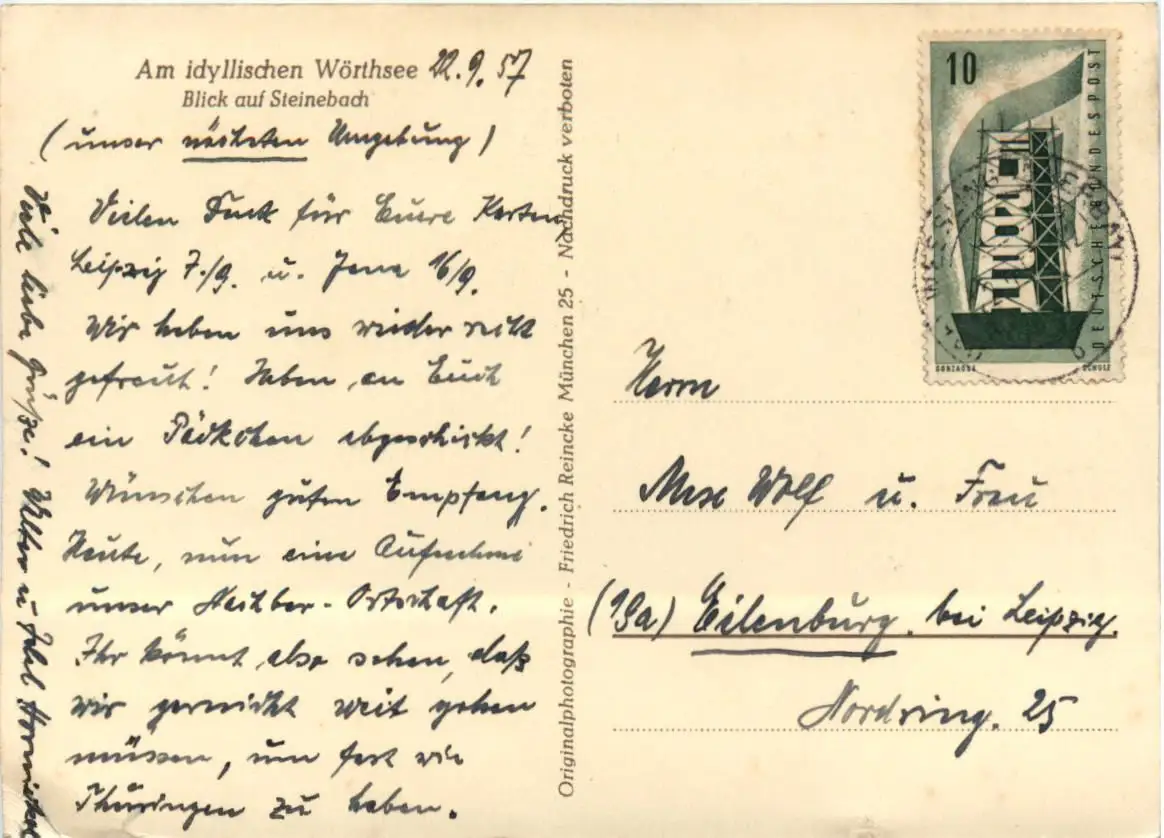 Am idyllischen Wörthsee 22.9.57
Blick auf Steinebach
(unser nächsten Umgebung)
Vielen Dank für Euere Karten
Leipzig 7./9. u. Jena 16/9.
Wir haben uns wieder recht
gefreut! Haben an Euch
ein Päckchen abgeschickt!
Wünschen guten Empfang.
Heute, nun eine Aufnahme
unser Nachbar-Ortschaft.
Ihr könnt also sehen, daß
wir garnicht weit gehen
müssen, um fast wie
Thüringen zu haben.
Viele liebe Grüße! Walter u.
Originalphotographie - Friedrich Reincke München 25 - Nachdruck verboten
10
DEUTSCHE BUNDESPOST
GONZAGUE SCHULZ
Herrn
Max Wolf u. Frau
(19a) Eilenburg, bei Leipzig.
Nordring. 25